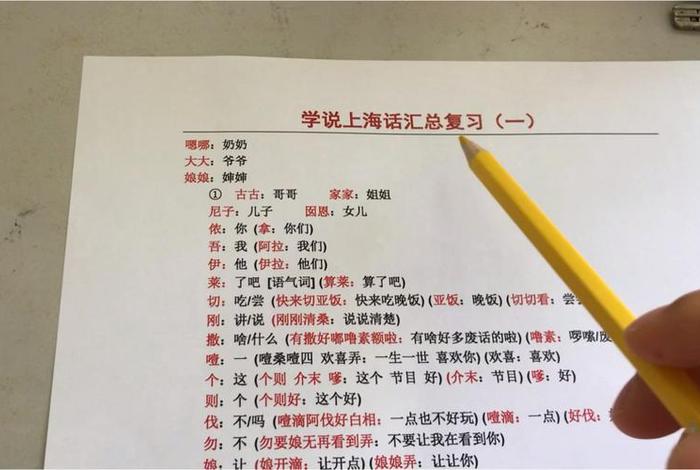 学说上海话汇总复习（一）
嗯哪：奶奶
大大：爷爷
娘娘：婶婶
① 古古：哥哥 家家：姐姐
尼子：儿子 囡恩：女儿
侬：你（拿：你们）
吾：我（阿拉：我们）
伊：他（伊拉：他们）
莱：了吧 [语气词]（算莱：算了吧）
切：吃/尝（快来切亚饭：快来吃晚饭）(亚饭：晚饭)（切切看：尝
刚：讲/说（刚刚清桑：说说清楚）
撒：啥/什么（有撒好嘟噜素额啦：有啥好多废话的啦）(噜素：啰嗦/废
噎：一（噎桑噎四 欢喜弄：一生一世 喜欢你）(欢喜：喜欢)
个：这（个则 介末 嗲：这个 节目 好）(介末：节目)（嗲：好）
则：个（个则好：这个好）
伐：不/吗（噎滴阿伐好白相：一点也不好玩）（噎滴：一点）（好伐：
勿：不（勿要娘无再看到弄：不要让我在看到你）
娘：让（娘开滴：让开点）（娘娘弄：让让你）